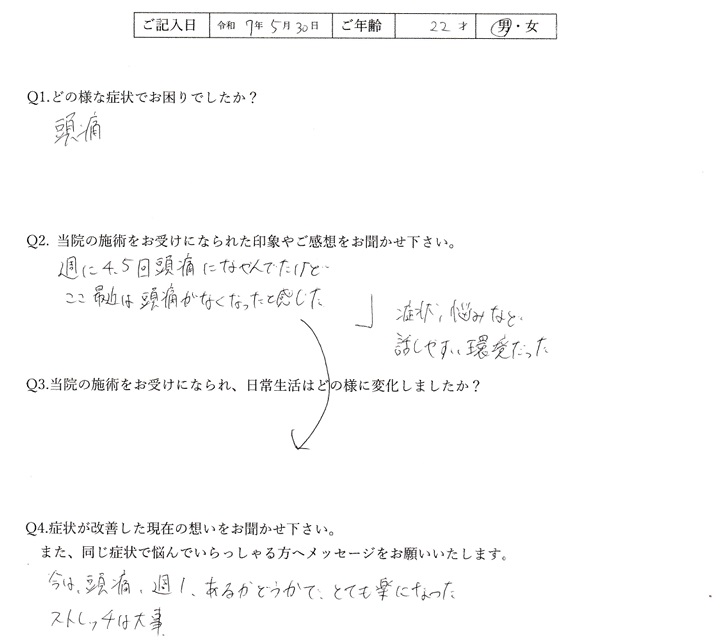 ご記入日 令和 7年 5月 30日 ご年齢 22 才 男・女
Q1.どの様な症状でお困りでしたか？
頭痛
Q2. 当院の施術をお受けになられた印象やご感想をお聞かせ下さい。
週に4、5回頭痛になやんでたけど、
ここ最近は頭痛がなくなったと感じた
症状、悩みなど、
話しやすい環境だった
Q3.当院の施術をお受けになられ、日常生活はどの様に変化しましたか？
Q4.症状が改善した現在の想いをお聞かせ下さい。
また、同じ症状で悩んでいらっしゃる方へメッセージをお願いいたします。
今は、頭痛、週1、あるかどうかで、とても楽になった
ストレッチは大事